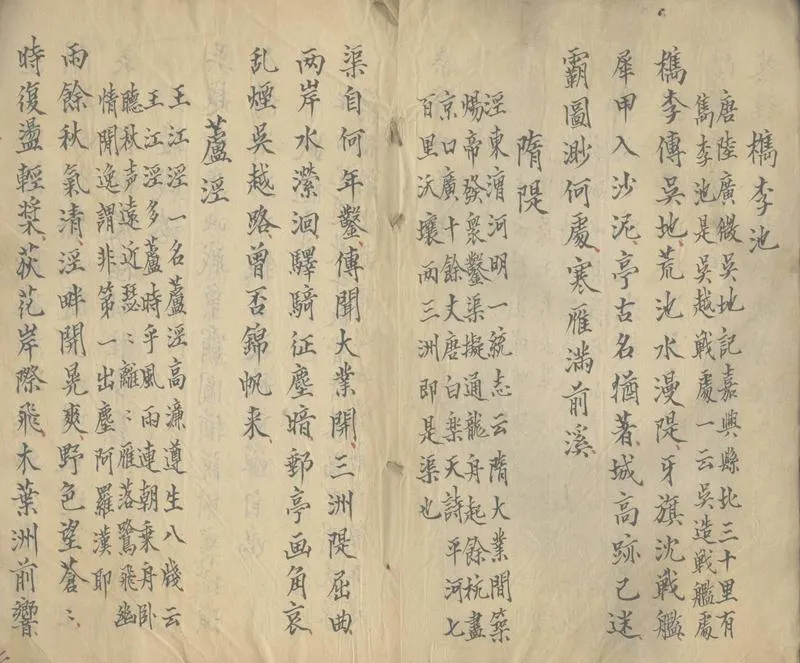 檇李池
唐陸廣微吳地記嘉興縣北三十里有
雋李池是吳越戰處一云吳造戰艦處
檇李傳吳地荒池水漫隄牙旗沈戰艦
犀甲入沙泥亭古名猶著城高跡已迷
霸圖渺何處寒雁滿前溪
隋隄
涇東漕河明一統志云隋大業間築
煬帝發衆鑿渠擬通龍舟起餘杭盡
京口廣十餘丈唐白樂天詩平河七
百里沃壤兩三洲即是渠也
渠自何年鑿傳聞大業開三洲隄屈曲
两岸水濚洄驛騎征塵暗郵亭画角哀
乱煙吳越路曾否錦帆来
蘆涇
王江涇一名蘆涇高濂遵生八牋云
王江涇多蘆時乎風雨連朝乗舟卧
聽秋声遠近瑟〻離〻雁落鷺飛幽
情閒逸謂非第一出塵阿羅漢耶
雨餘秋氣清涇畔開晃爽野色望蒼〻
時復盪輕槳荻花岸際飛木葉洲前響